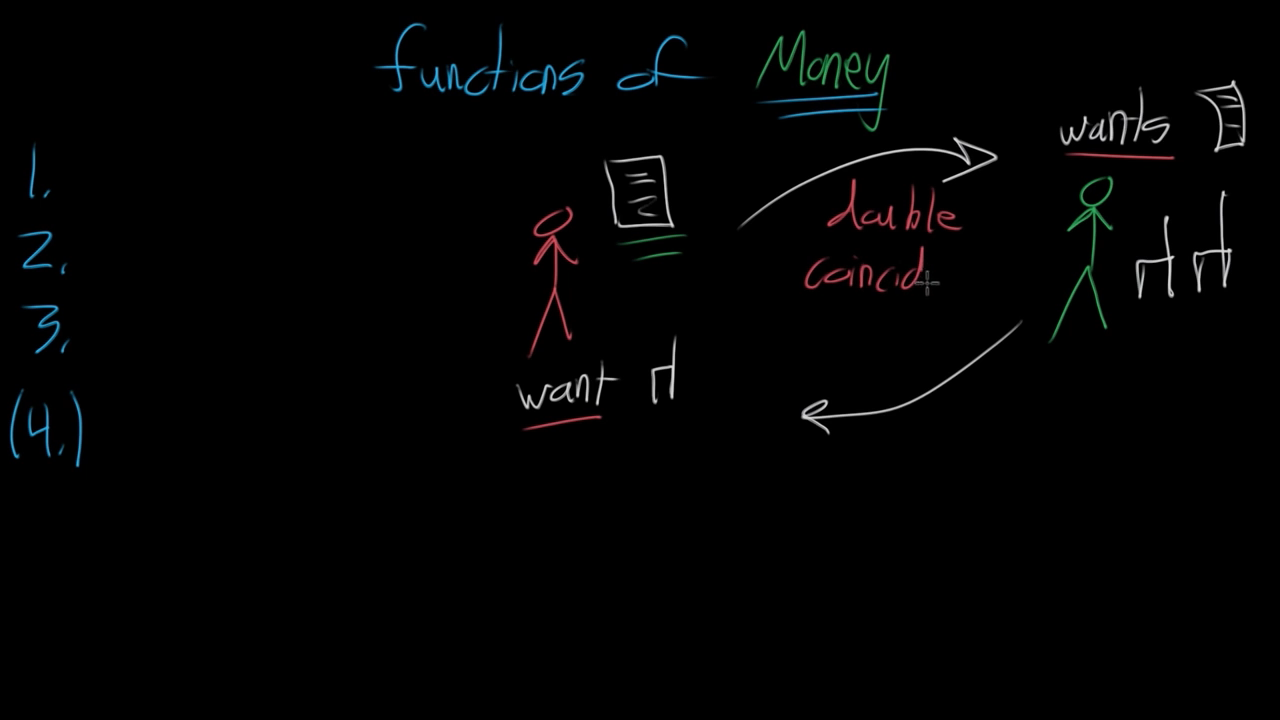 functions of Money
1.
2.
3.
(4.)
wants
double
coincid
want